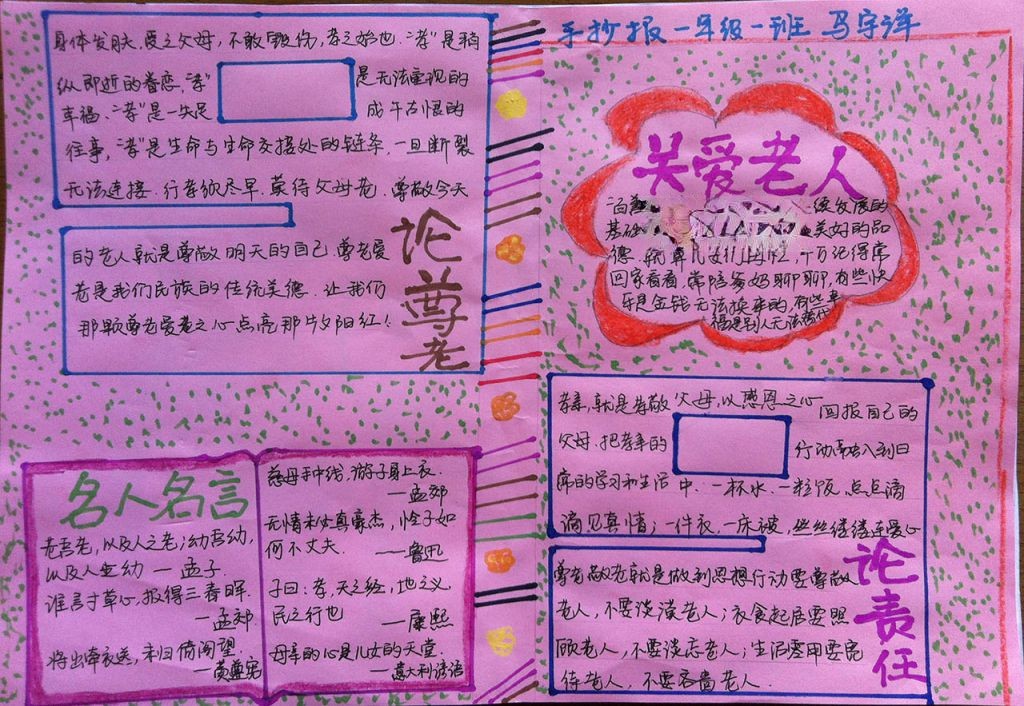 手抄报一年级一班 马宇洋
身体发肤,受之父母,不敢毁伤,孝之始也."孝"是稍
纵即逝的眷恋,"孝"是无法重现的
幸福."孝"是一失足成千古恨的
往事,"孝"是生命与生命交接处的链条,一旦断裂
无法连接.行孝须尽早.莫待父母老.尊敬今天
的老人就是尊敬明天的自己.尊老爱
老是我们民族的传统美德.让我们
那颗尊老爱老之心点亮那片夕阳红!
论尊老
名人名言
老吾老,以及人之老;幼吾幼,
以及人之幼 — 孟子
谁言寸草心,报得三春晖.
—孟郊
将出牵衣送,未归倚阁望.
—黄遵宪
慈母手中线,游子身上衣.
—孟郊
无情未必真豪杰,怜子如
何不丈夫. ——鲁迅
子曰:孝,天之经,地之义
民之行也 —康熙
母亲的心是儿女的天堂.
—意大利谚语
关爱老人
发展的
基础 美好的品
德. 记得常
回家看看.常陪爷奶聊聊,有些快
乐是金钱无法换来的,有些幸
福是别人无法替代
孝亲,就是孝敬父母,以感恩之心回报自己的
父母.把孝亲的行动融入到日
常的学习和生活中.一杯水.一粒饭.点点滴
滴见真情;一件衣,一床被,丝丝缕缕连爱心
论责任
尊老敬老就是做到思想行动要尊敬
老人,不要淡漠老人;衣食起居要照
顾老人,不要淡忘老人;生活零用要
待老人,不要吝啬老人.